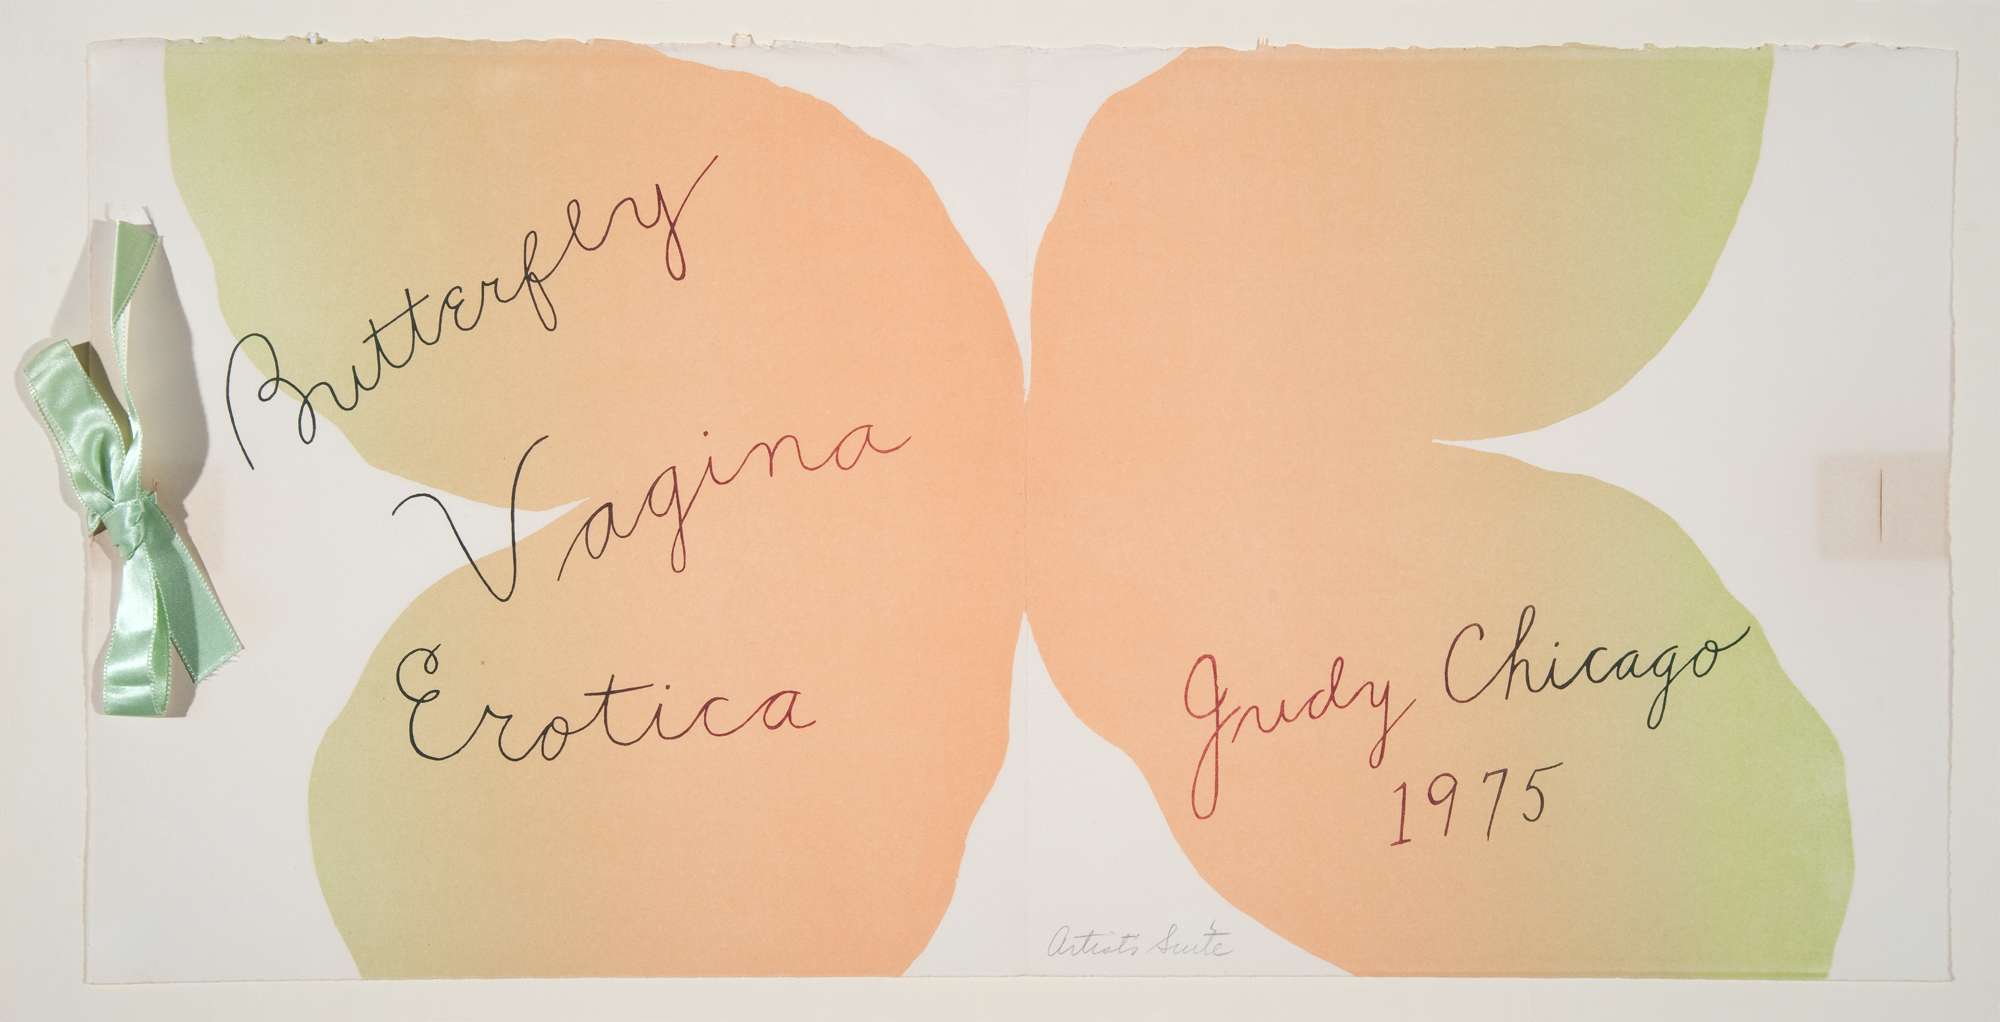 Butterfly
Vagina
Erotica
Judy Chicago
1975
Artist's Suite